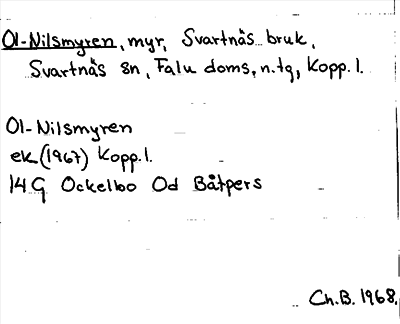 Ol-Nilsmyren, myr, Svartnäs bruk,
Svartnäs sn, Falu doms, n.tg, Kopp. l.
Ol-Nilsmyren
ek (1967) Kopp. l.
14 G Ockelbo Od Båtpers
Ch.B. 1968.